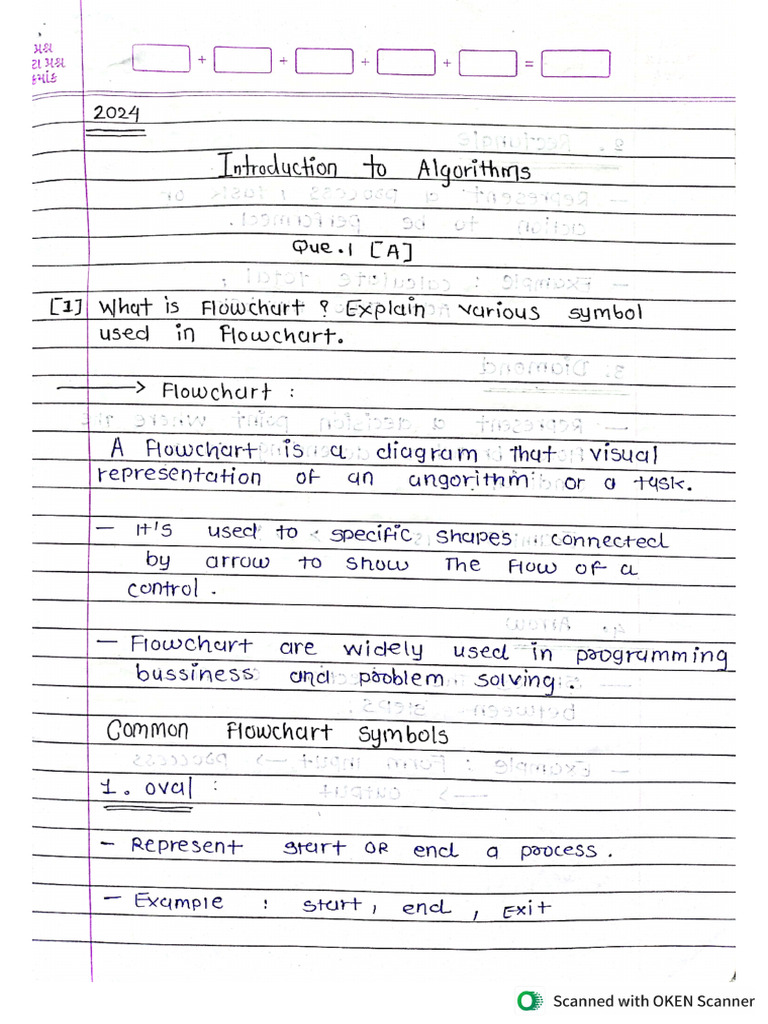 મશ્ન
ટા મશ્ન
+ + + + =
2024
Introduction to Algorithms
Que.1 [A]
[1] What is Flowchart ? Explain various symbol
used in flowchart.
→ Flowchart :
A flowchart is a diagram that visual
representation of an angorithm or a task.
- It's used to specific shapes connected
by arrow to show The Flow of a
control.
- Flowchart are widely used in programming
bussiness and problem solving.
Common Flowchart symbols
1. oval :
- Represent start OR end a process.
- Example : start, end, Exit
Scanned with OKEN Scanner